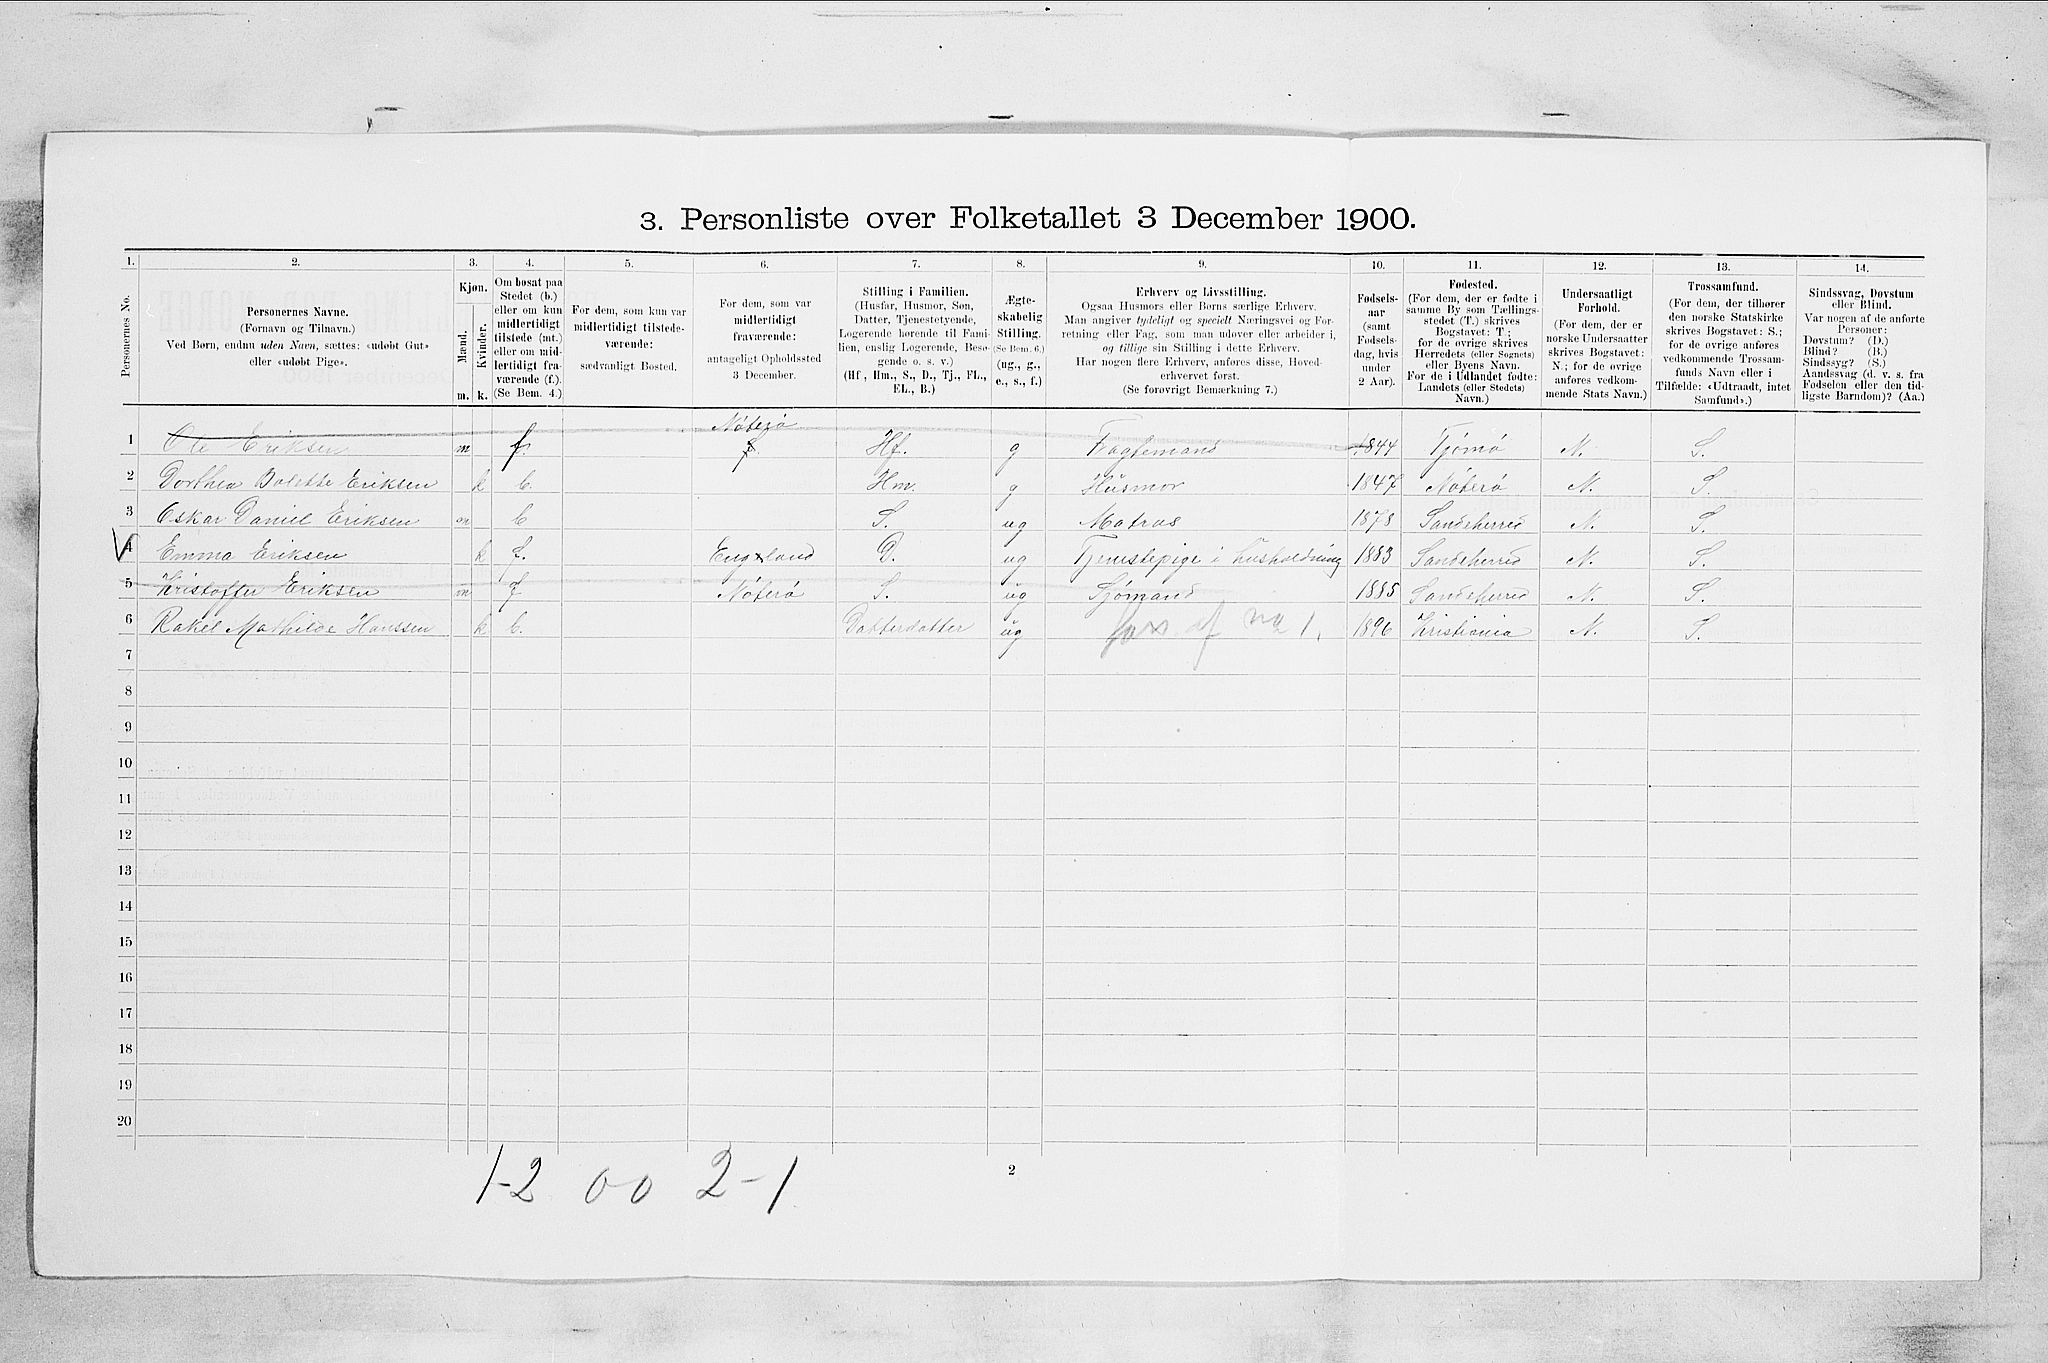 3. Personliste over Folketallet 3 December 1900.
1. 2. 3. 4. 5. 6. 7. 8. 9. 10. 11. 12. 13. 14.
Personernes No.
Personernes Navne.
(Fornavn og Tilnavn.)
Ved Børn, endnu uden Navn, sættes: «udøbt Gut»
eller «udøbt Pige».
Kjøn.
Mænd.
Kvinder.
m. k.
Om bosat paa
Stedet (b.)
eller om kun
midlertidigt
tilstede (mt.)
eller om mid-
lertidigt fra-
værende (f.).
(Se Bem. 4.)
For dem, som kun var
midlertidigt tilstede-
værende:
sædvanligt Bosted.
For dem, som var
midlertidigt
fraværende:
antageligt Opholdssted
3 December.
Stilling i Familien.
(Husfar, Husmor, Søn,
Datter, Tjenestetyende,
Logerende hørende til Fami-
lien, enslig Logerende, Besø-
gende o. s. v.)
(Hf., Hm., S., D., Tj., FL.,
EL., B.)
Ægte-
skabelig
Stilling.
(Se Bem. 6.)
(ug., g.,
e., s., f.)
Erhverv og Livsstilling.
Ogsaa Husmors eller Børns særlige Erhverv.
Man angiver tydeligt og specielt Næringsvei og For-
retning eller Fag, som man udøver eller arbeider i,
og tillige sin Stilling i dette Erhverv.
Har nogen flere Erhverv, anføres disse, Hoved-
erhvervet først.
(Se forøvrigt Bemærkning 7.)
Fødsels-
aar
(samt
Fødsels-
dag, hvis
under
2 Aar).
Fødested.
(For dem, der er fødte i
samme By som Tællings-
stedet (T.) skrives
Bogstavet: T.;
for de øvrige skrives
Herredets (eller Sognets)
eller Byens Navn.
For de i Udlandet fødte:
Landets (eller Stedets)
Navn.)
Undersaatligt
Forhold.
(For dem, der er
norske Undersaatter
skrives Bogstavet:
N.; for de øvrige
anføres vedkom-
mende Stats Navn.)
Trossamfund.
(For dem, der tilhører
den norske Statskirke
skrives Bogstavet: S.;
for de øvrige anføres
vedkommende Trossam-
funds Navn eller i
Tilfælde: «Udtraadt, intet
Samfund».)
Sindssvag, Døvstum
eller Blind.
Var nogen af de anførte
Personer:
Døvstum? (D.)
Blind? (B.)
Sindssyg? (S.)
Aandssvag (d. v. s. fra
Fødselen eller den tid-
ligste Barndom)? (Aa.)
Nøterø
1 Ole Eriksen m f. Hf. g Fagtemand 1844 Tjømø N. S.
2 Dorthea Bolette Eriksen k b. Hm. g Husmor 1847 Nøterø N. S.
3 Oskar Daniel Eriksen m b S. ug Matros 1878 Sandeherred N. S.
4 Emma Eriksen k f. England D. ug Tjenestepige i husholdning 1883 Sandeherred N. S.
5 Kristoffer Eriksen m f Nøterø S. ug Sjømand 1885 Sandeherred N. S.
6 Rakel Mathilde Hanssen k b. Datterdatter ug fors. af no 1. 1896 Kristiania N. S.
7
8
9
10
11
12
13
14
15
16
17
18
19
20
1-2 0-0 2-1
2